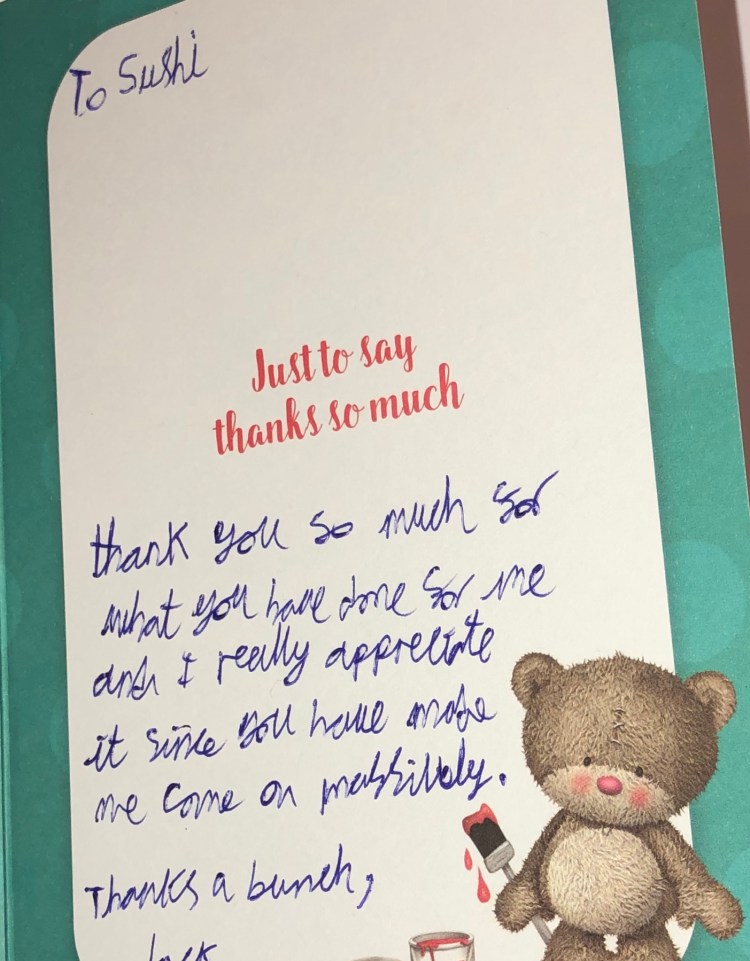 To Sushi
Just to say
thanks so much
thank you so much for
what you have done for me
and I really appreciate
it since you have made
me come on massively.
Thanks a bunch,